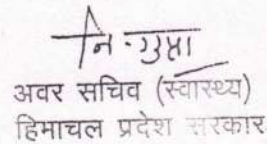 नि. गुप्ता
अवर सचिव (स्वास्थ्य)
हिमाचल प्रदेश सरकार